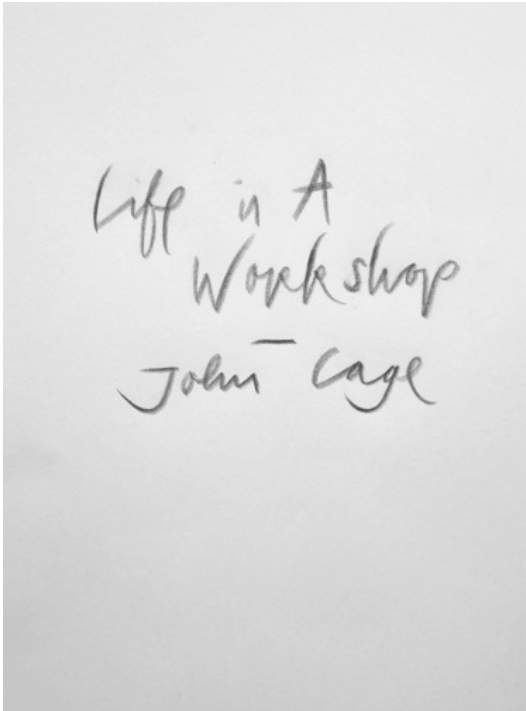 Life is A
Workshop
—
John Cage